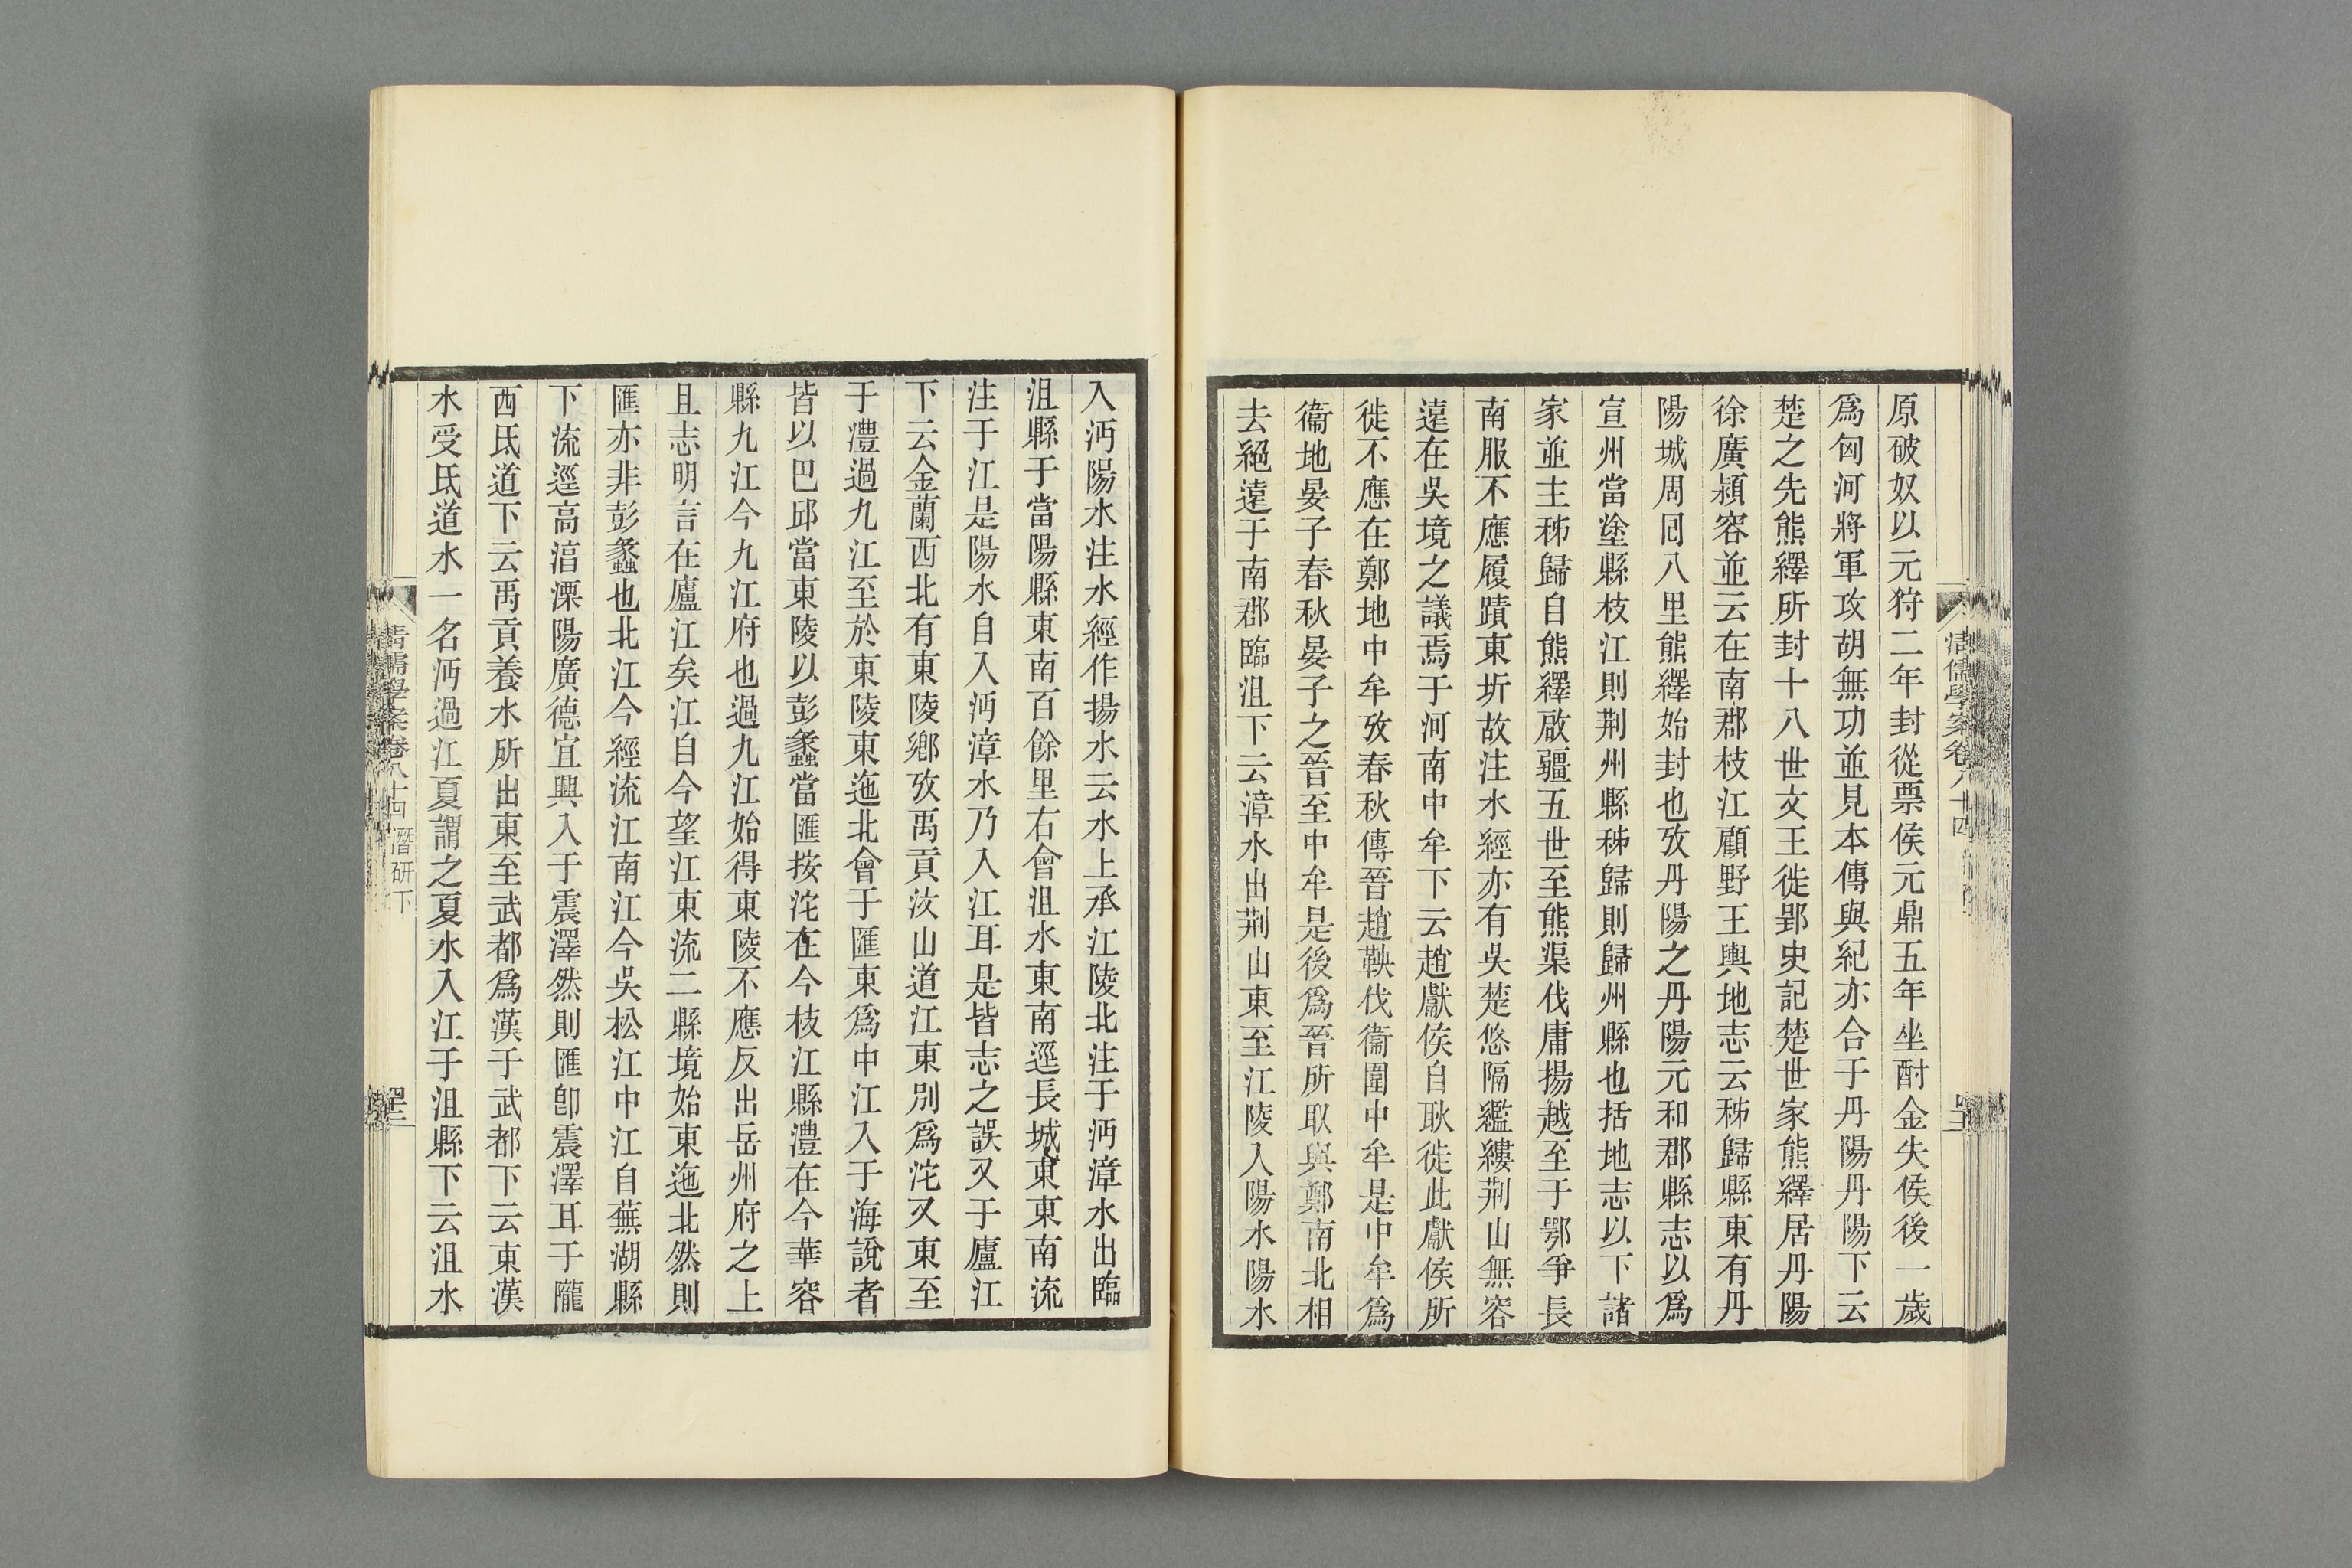 原破奴以元狩二年封從票侯元鼎五年坐酎金失侯後一歲
爲匈河將軍攻胡無功並見本傳與紀亦合于丹陽丹陽下云
楚之先熊繹所封十八世文王徙郢史記楚世家熊繹居丹陽
徐廣潁容並云在南郡枝江顧野王輿地志云秭歸縣東有丹
陽城周囘八里熊繹始封也攷丹陽之丹陽元和郡縣志以爲
宣州當塗縣枝江則荆州縣秭歸則歸州縣也括地志以下諸
家並主秭歸自熊繹啟疆五世至熊渠伐庸揚越至于鄂爭長
南服不應履蹟東圻故注水經亦有吳楚悠隔繿縷荆山無容
遠在吳境之議焉于河南中牟下云趙獻侯自耿徙此獻侯所
徙不應在鄭地中牟攷春秋傳晉趙鞅伐衞圍中牟是中牟爲
衞地晏子春秋晏子之晉至中牟是後爲晉所取與鄭南北相
去絕遠于南郡臨沮下云漳水出荆山東至江陵入陽水陽水
清儒學案卷八十四
入沔陽水注水經作揚水云水上承江陵北注于沔漳水出臨
沮縣于當陽縣東南百餘里右會沮水東南逕長城東東南流
注于江是陽水自入沔漳水乃入江耳是皆志之誤又于廬江
下云金蘭西北有東陵鄉攷禹貢汶山道江東別爲沱又東至
于灃過九江至於東陵東迤北會于匯東爲中江入于海說者
皆以巴邱當東陵以彭蠡當匯按沱在今枝江縣灃在今華容
縣九江今九江府也過九江始得東陵不應反出岳州府之上
且志明言在廬江矣江自今望江東流二縣境始東迤北然則
匯亦非彭蠡也北江今經流江南江今吳松江中江自蕪湖縣
下流逕高湻溧陽廣德宜興入于震澤然則匯卽震澤耳于隴
西氐道下云禹貢養水所出東至武都爲漢于武都下云東漢
水受氐道水一名沔過江夏謂之夏水入江于沮縣下云沮水
清儒學案卷八十四 潛研下